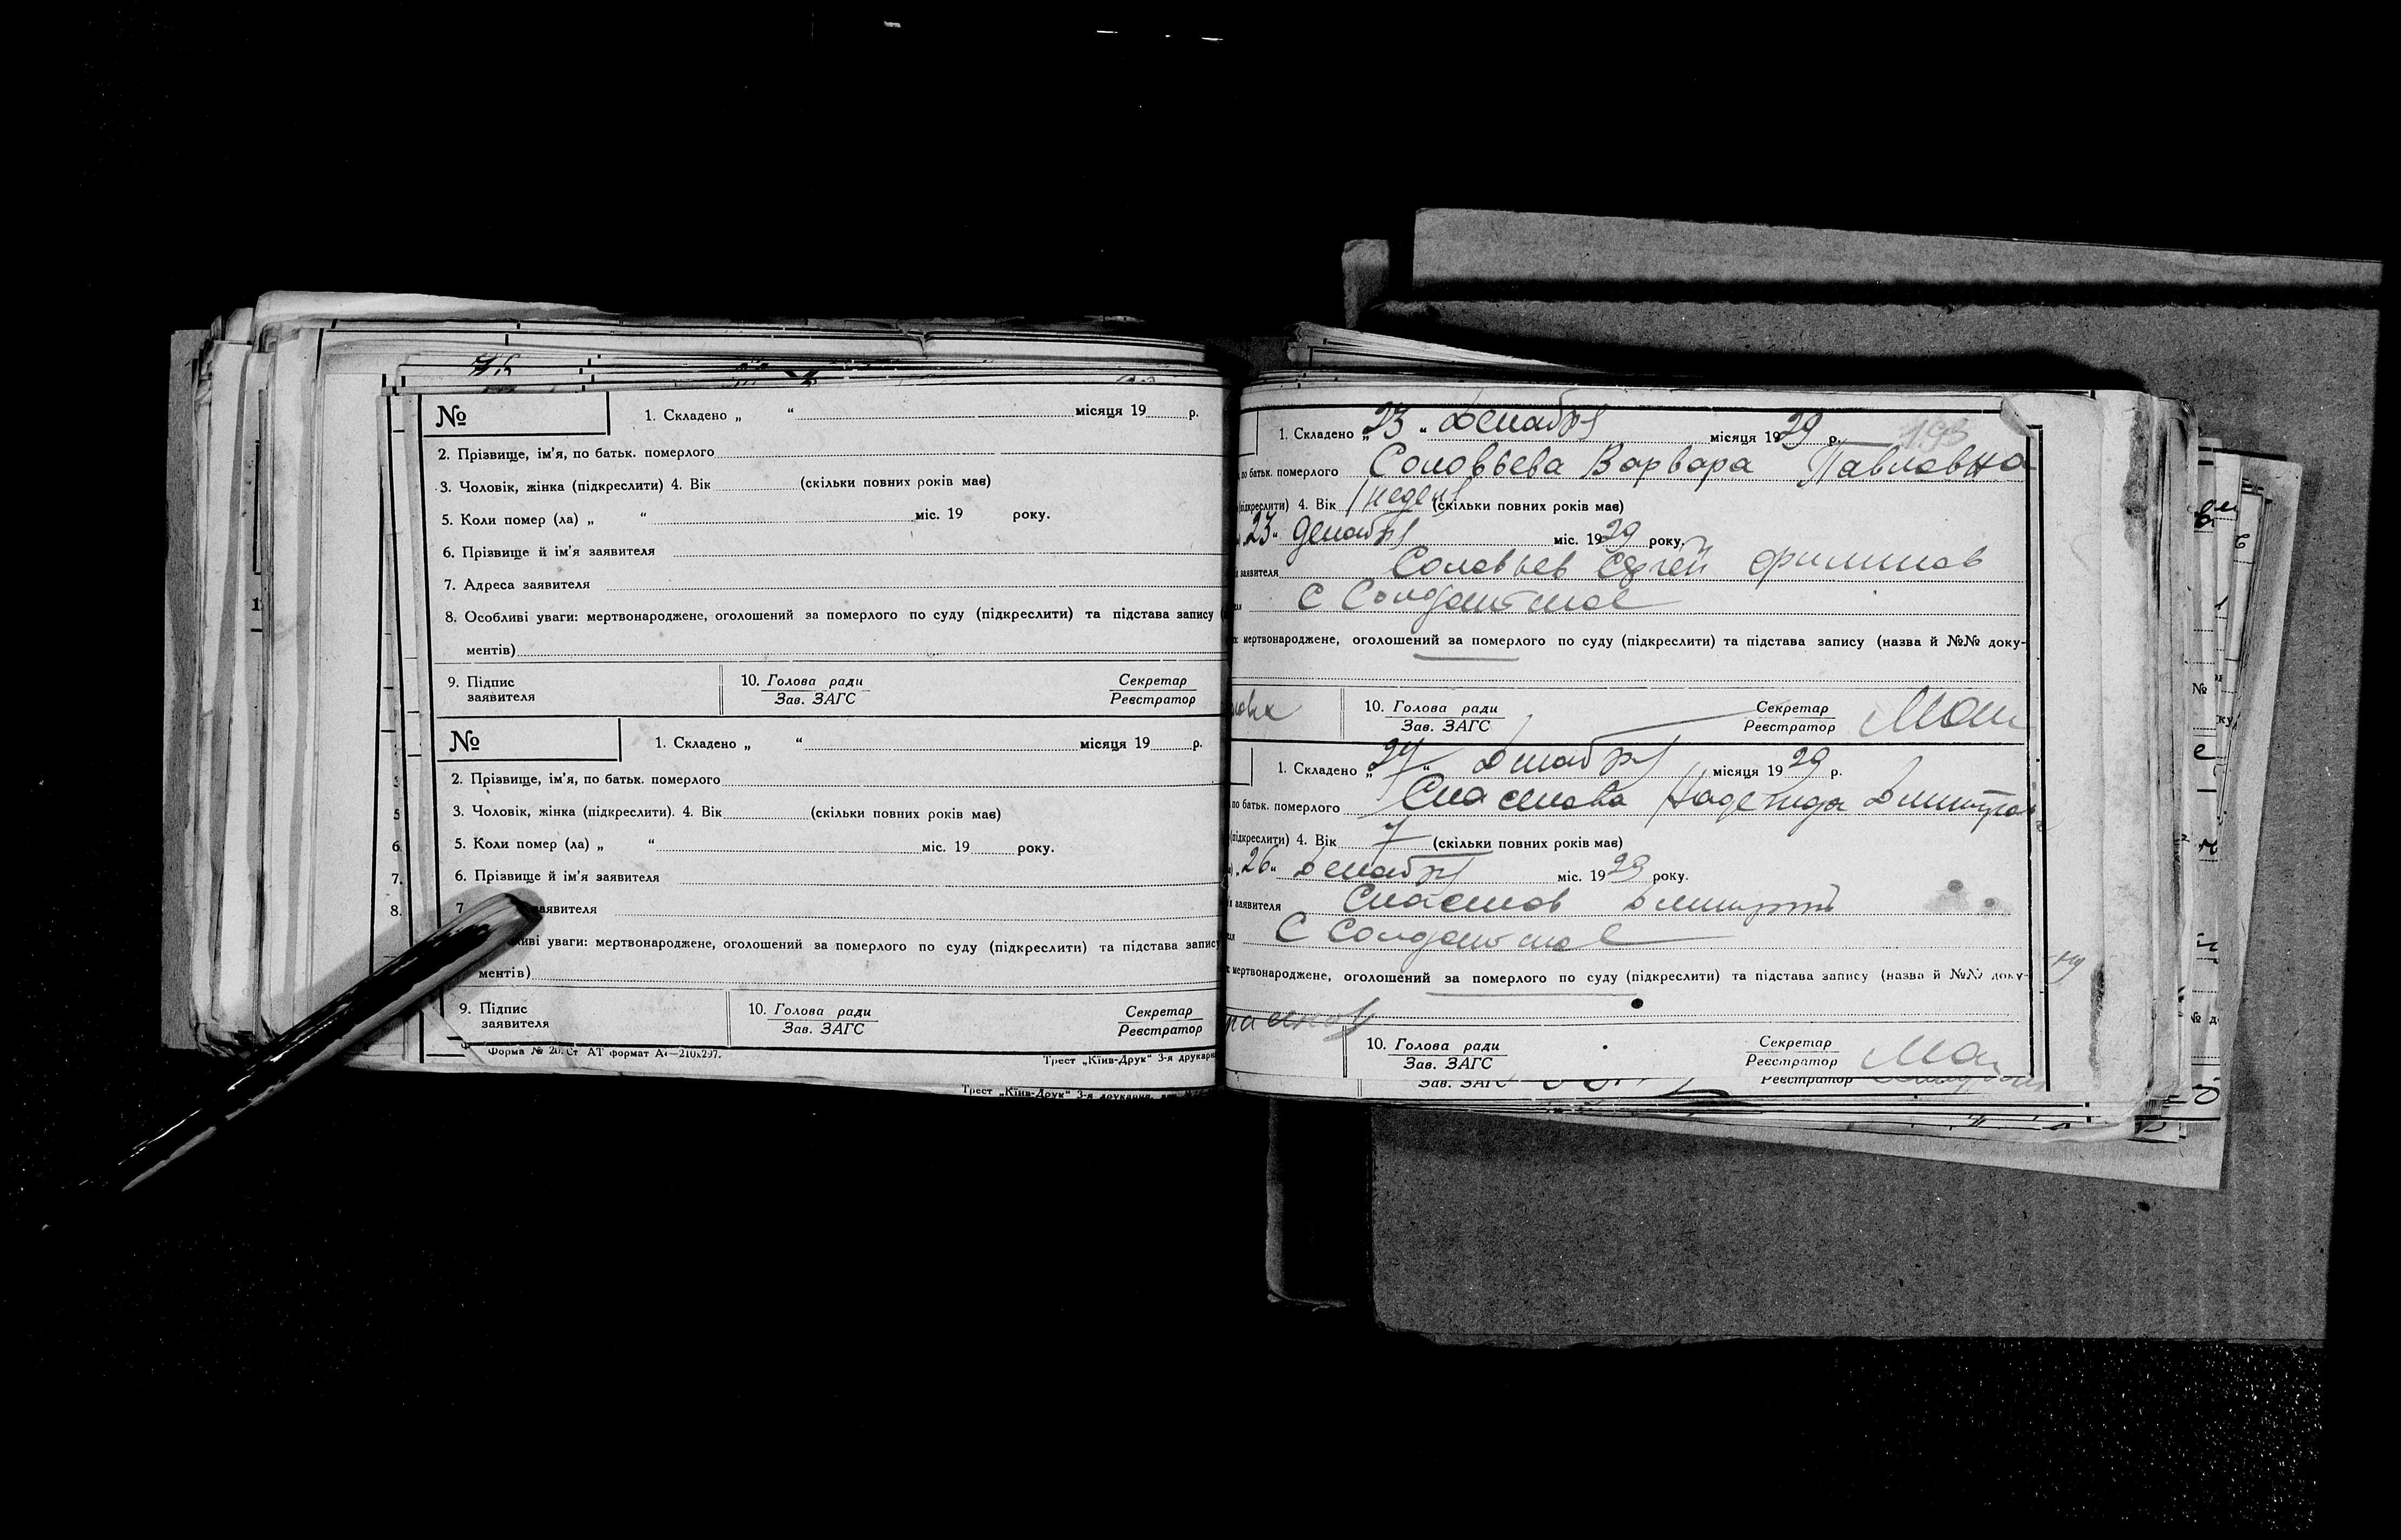 № 1. Складено „ “ місяця 19 р.
2. Прізвище, ім'я, по батьк. померлого
3. Чоловік, жінка (підкреслити) 4. Вік (скільки повних років має)
5. Коли помер (ла) „ “ міс. 19 року.
6. Прізвище й ім'я заявителя
7. Адреса заявителя
8. Особливі уваги: мертвонароджене, оголошений за померлого по суду (підкреслити) та підстава запису
ментів)
9. Підпис заявителя 10. Голова ради Секретар
Зав. ЗАГС Реєстратор
№ 1. Складено „ “ місяця 19 р.
2. Прізвище, ім'я, по батьк. померлого
3. Чоловік, жінка (підкреслити). 4. Вік (скільки повних років має)
5. Коли помер (ла) „ “ міс. 19 року.
6. Прізвище й ім'я заявителя
7 заявителя
уваги: мертвонароджене, оголошений за померлого по суду (підкреслити) та підстава запису
ментів)
9. Підпис заявителя 10. Голова ради Секретар
Зав. ЗАГС Реєстратор
Форма № 20. Ст АТ формат А4—210x297. Трест „Київ-Друк“ 3-я друкарн
Трест „Київ-Друк“ 3-я друкарня,
1. Складено „23“ Декабря місяця 1929 р. 193
по батьк. померлого Соловьева Варвара Павловна
(підкреслити) 4. Вік 1 неделя (скільки повних років має)
„23“ декабря міс. 1929 року.
заявителя Соловьев Сергей Филипов
С Солдатское
мертвонароджене, оголошений за померлого по суду (підкреслити) та підстава запису (назва й №№ доку-
10. Голова ради Секретар
Зав. ЗАГС Реєстратор
1. Складено „27“ Декабря місяця 1929 р.
по батьк. померлого Спасенова Надежда Дмитров
(підкреслити) 4. Вік 7 (скільки повних років має)
„26“ Декабря міс. 1929 року.
заявителя Спасенов Дмитрий
С Солдатское
мертвонароджене, оголошений за померлого по суду (підкреслити) та підстава запису (назва й №№ доку-
10. Голова ради Секретар
Зав. ЗАГС Реєстратор
Зав. ЗАГС Реєстратор